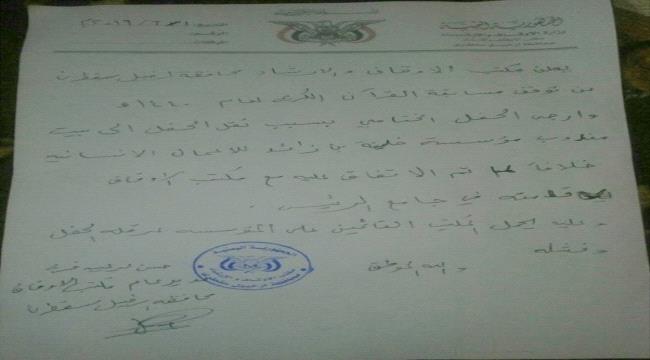 الجمهورية اليمنية
وزارة الأوقاف والإرشاد
يعلن مكتب الاوقاف والارشاد محافظة ارخبيل سقطرى
عن توقف مسابقة القرآن الكريم لعام ١٤٤٠هـ
الحفل الختامي بسبب نقل الحفل الى بيت
مندوب مؤسسة خليفة بن زائد للاعمال الانسانية
خلافاً لما تم الاتفاق عليه مع مكتب الاوقاف
اقامته في جامع الرئيس .
وعليه يحمل المكتب القائمين على المؤسسة عرقلة الحفل
وفشله
والله الموفق
مدير عام مكتب الاوقاف
محافظة ارخبيل سقطرى